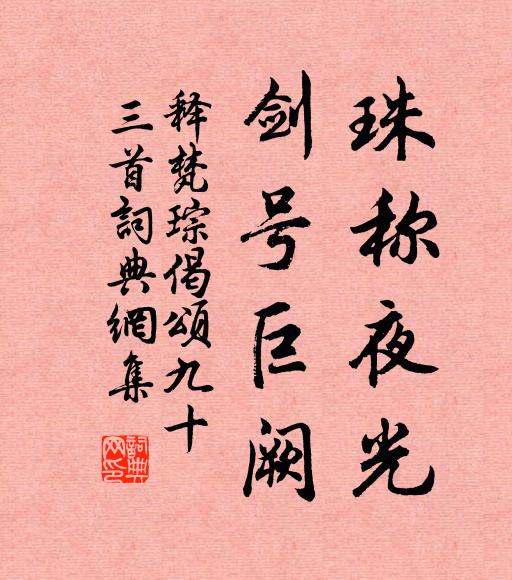 珠称夜光
剑号巨阙
释梵琮偈頌九十
三首詞典網集
詞典
网印